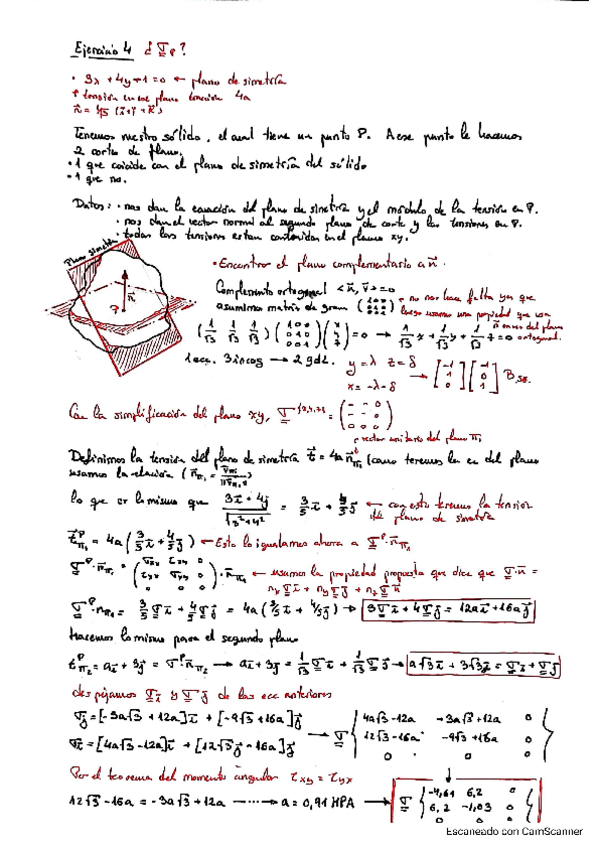 Ejercicio 4 ¿ σ_P ?
· 3x + 4y + 1 = 0 ← plano de simetría
↑ tensión en ese plano tracción 4a
n⃗ = 1/√3 (i⃗ + j⃗ + k⃗)
Tenemos nuestro sólido, el cual tiene un punto P. A ese punto le hacemos
2 cortes de plano,
· 1 que coicide con el plano de simetría del sólido
· 1 que no.
Datos: · nos dan la ecuación del plano de simetría y el módulo de la tensión en P.
· nos dan el vector normal al segundo plano de corte y las tensiones en P.
· todas las tensiones estan contenidas en el plano xy.
Plano simetría
n⃗
P
· Encontrar el plano complementario a n⃗.
Complemento ortogonal <n⃗, v⃗> = 0
asumimos matriz de gram (1 0 0 / 0 1 0 / 0 0 1)
← no nos hace falta ya que
luego usamos una propiedad que usa
n⃗ en vez del plano
ortogonal.
(1/√3 1/√3 1/√3) (1 0 0 / 0 1 0 / 0 0 1) (x / y / z) = 0 → 1/√3 x + 1/√3 y + 1/√3 z = 0
1 ecc. 3 incog → 2 gdl. y = λ z = δ
x = -λ - δ → [-1 / 1 / 0] [-1 / 0 / 1]
Con la simplificación del plano xy, σ = (- - 0 / - - 0 / 0 0 0)
vector unitario del plano π₁
Definimos la tensión del plano de simetría t⃗ = 4a n⃗ (como tenemos la ec del plano
usamos la relación
lo que es lo mismo que (3i + 4j)/√(3² + 4²) = 3/5 i⃗ + 4/5 j⃗ ← con esto tenemos la tensión
plano de simetría
t⃗^P_π₁ = 4a (3/5 i⃗ + 4/5 j⃗) ← Esto lo igualamos ahora a σ^P · n⃗_π₁
σ^P · n⃗_π₁ = (σxx τxy 0 / τxy σyy 0 / 0 0 0) · n⃗_π₁ ← usamos la propiedad propuesta que dice que σ · n⃗ =
nx σ i⃗ + ny σ j⃗ + nz σ k⃗
σ^P · n_π₁ = 3/5 σ i⃗ + 4/5 σ j⃗ = 4a (3/5 i⃗ + 4/5 j⃗) → 3σ i⃗ + 4σ j⃗ = 12a i⃗ + 16a j⃗
Hacemos lo mismo para el segundo plano
t⃗^P_π₂ = a i⃗ + 3j⃗ = σ^P n⃗_π₂ → a i⃗ + 3j⃗ = 1/√3 σ i⃗ + 1/√3 σ j⃗ → a√3 i⃗ + 3√3 j⃗ = σ i⃗ + σ j⃗
despejamos σ i⃗ y σ j⃗ de las ecc anteriores
σ j⃗ = [-3a√3 + 12a] i⃗ + [-9√3 + 16a] j⃗
σ i⃗ = [4a√3 - 12a] i⃗ + [12√3 - 16a] j⃗
→ σ { 4a√3 - 12a -3a√3 + 12a 0 / 12√3 - 16a -9√3 + 16a 0 / 0 0 0 }
Por el teorema del momento angular τxy = τyx
12√3 - 16a = -3a√3 + 12a ······→ a = 0,91 MPA → σ { -4,61 6,2 0 / 6,2 -1,03 0 / 0 0 0 }
Escaneado con CamScanner